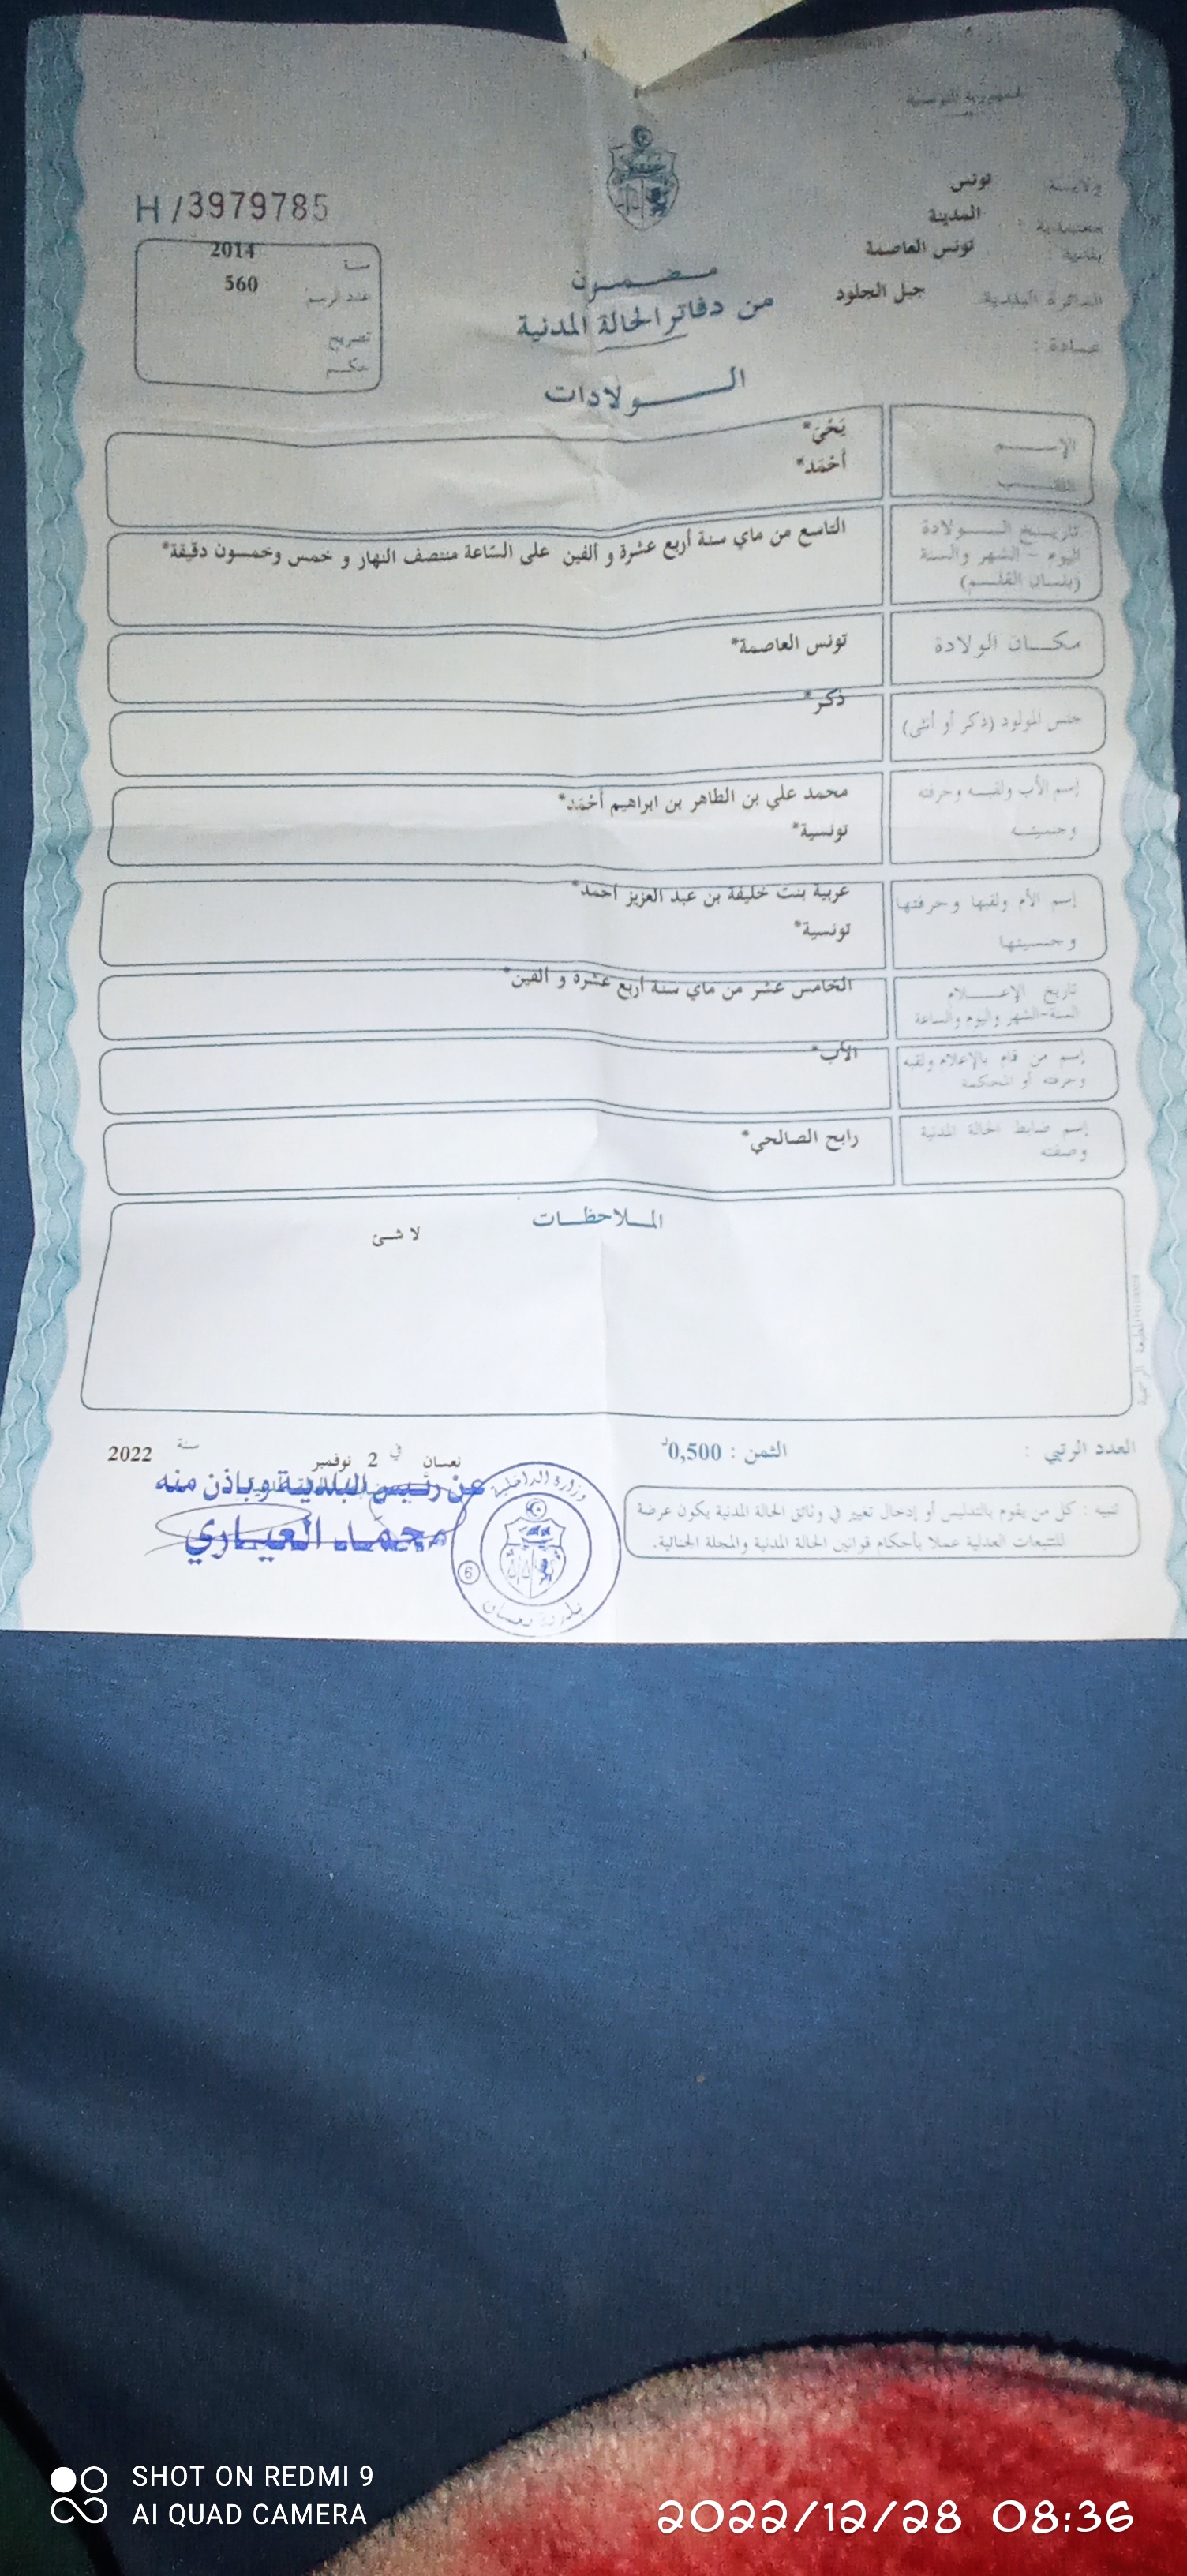 الجمهورية التونسية
H/3979785
ولايـــة : تونس
معتمدية : المدينة
بلدية : تونس العاصمة
الدائرة البلدية : جبل الجلود
عمادة :
سنة 2014
عدد الرسم 560
تصريح
حكم
مضمون
من دفاتر الحالة المدنية
الولادات
الإسم يَحْيَ*
اللقب أَحْمَد*
تاريخ الولادة
اليوم - الشهر والسنة
(بلسان القلم)
التاسع من ماي سنة أربع عشرة و ألفين على السّاعة منتصف النهار و خمس وخمسون دقيقة*
مكان الولادة تونس العاصمة*
جنس المولود (ذكر أو أنثى) ذكر*
إسم الأب ولقبه وحرفته محمد علي بن الطاهر بن ابراهيم أَحْمَد*
وجنسيته تونسية*
إسم الأم ولقبها وحرفتها عربية بنت خليفة بن عبد العزيز أحمد*
وجنسيتها تونسية*
تاريخ الإعلام الخامس عشر من ماي سنة أربع عشرة و ألفين*
السنة-الشهر واليوم والساعة
إسم من قام بالإعلام ولقبه الأب*
وحرفته أو المحكمة
إسم ضابط الحالة المدنية رابح الصالحي*
وصفته
الملاحظات
لا شئ
المطبعة الرسمية
العدد الرتبي : الثمن : 0,500د
نعسان في 2 نوفمبر سنة 2022
عن رئيس البلدية وبإذن منه
محمد العياري
وزارة الداخلية
بلدية نعسان
6
تنبيه : كل من يقوم بالتدليس أو إدخال تغيير في وثائق الحالة المدنية يكون عرضة
للتتبعات العدلية عملا بأحكام قوانين الحالة المدنية والمجلة الجنائية.
SHOT ON REDMI 9
AI QUAD CAMERA
2022/12/28 08:36